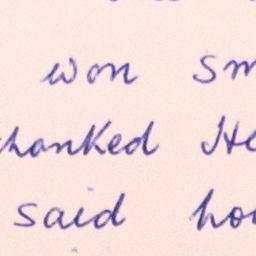 won sm
thanked He
said hou